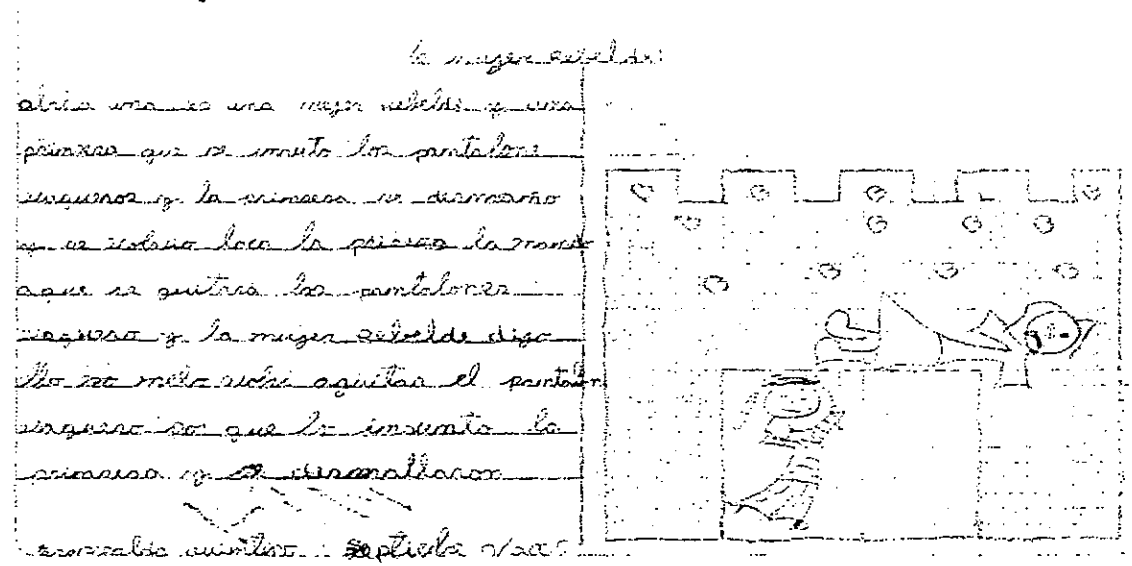 la mujer rebelde
abia una es una mujer rebelde y una
prinsesa que se imuto los pantalone
y la prinsesa se desmaño
y se volvio loca la prinsesa la mando
aque se quitara los pantalones
vaquero y la mujer rebelde digo
llo no melo aquitar el pantalon
vaquero por que lo la
prinsesa y se desmallaron